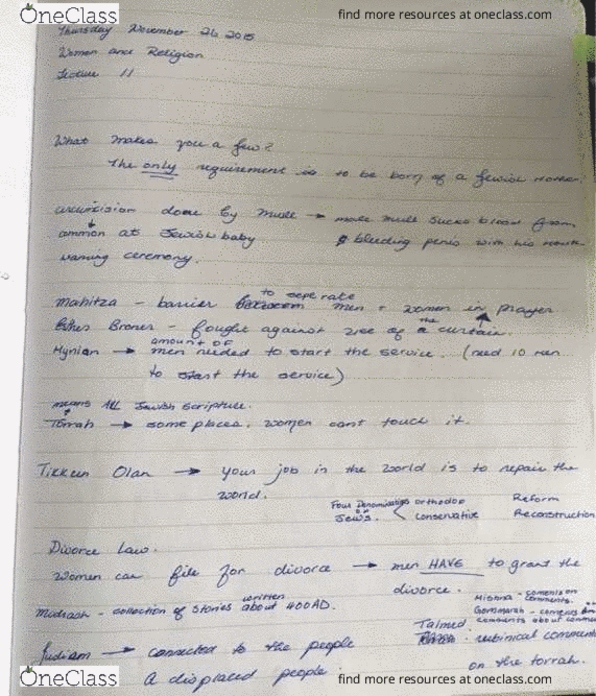 OneClass
find more resources at oneclass.com
Thursday November 26 2015
Women and Religion
Lecture 11
What makes you a Jew?
The only requirement is to be born of a Jewish Mother.
circumcision done by Mull → male mull sucks blood from
common at Jewish baby bleeding penis with his mouth
naming ceremony.
Mahitza - barrier to seperate men + women in prayer
Esther Broner - fought against use of a the curtain.
Mynian → amount of men needed to start the service. (need 10 men
to start the service)
means All Jewish Scripture.
Torrah → some places, women cant touch it.
Tikkun Olan → your job in the world is to repair the
world.
Four Denominations of Jews. < orthodox Reform
conservative Reconstruction
Divorce Law.
Women can file for divorce → men HAVE to grant the
divorce.
Midrash - collection of stories written about 400AD.
Mishna - coments on
comments.
Gommarah - coments
coments about
Talmed : rubinical comments
on the torrah.
Judiam → connected to the people
A displaced people.
OneClass
find more resources at oneclass.com